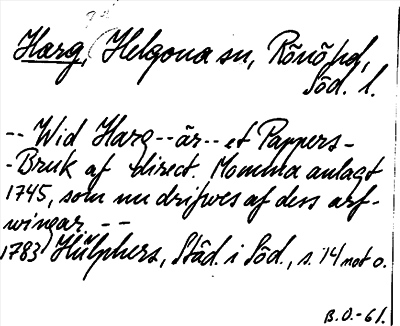 Harg, Helgona sn, Rönö hd,
Söd. l.
-- Wid Harg -- är -- et Pappers-
-Bruk af direct. Momma anlagt
1745, som nu drifwes af dess arf-
wingar. --
1783 Hülphers, Städ. i Söd., s. 14 not o.
B.O.-61.